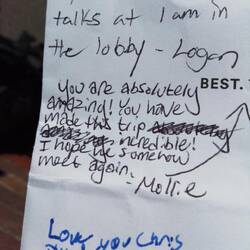 talks at 1 am in
the lobby - Logan
You are absolutely
amazind! You have
BEST.
made this trip
incredible!
I hope we somehow
meet again.
- Mollie
Love you Chris